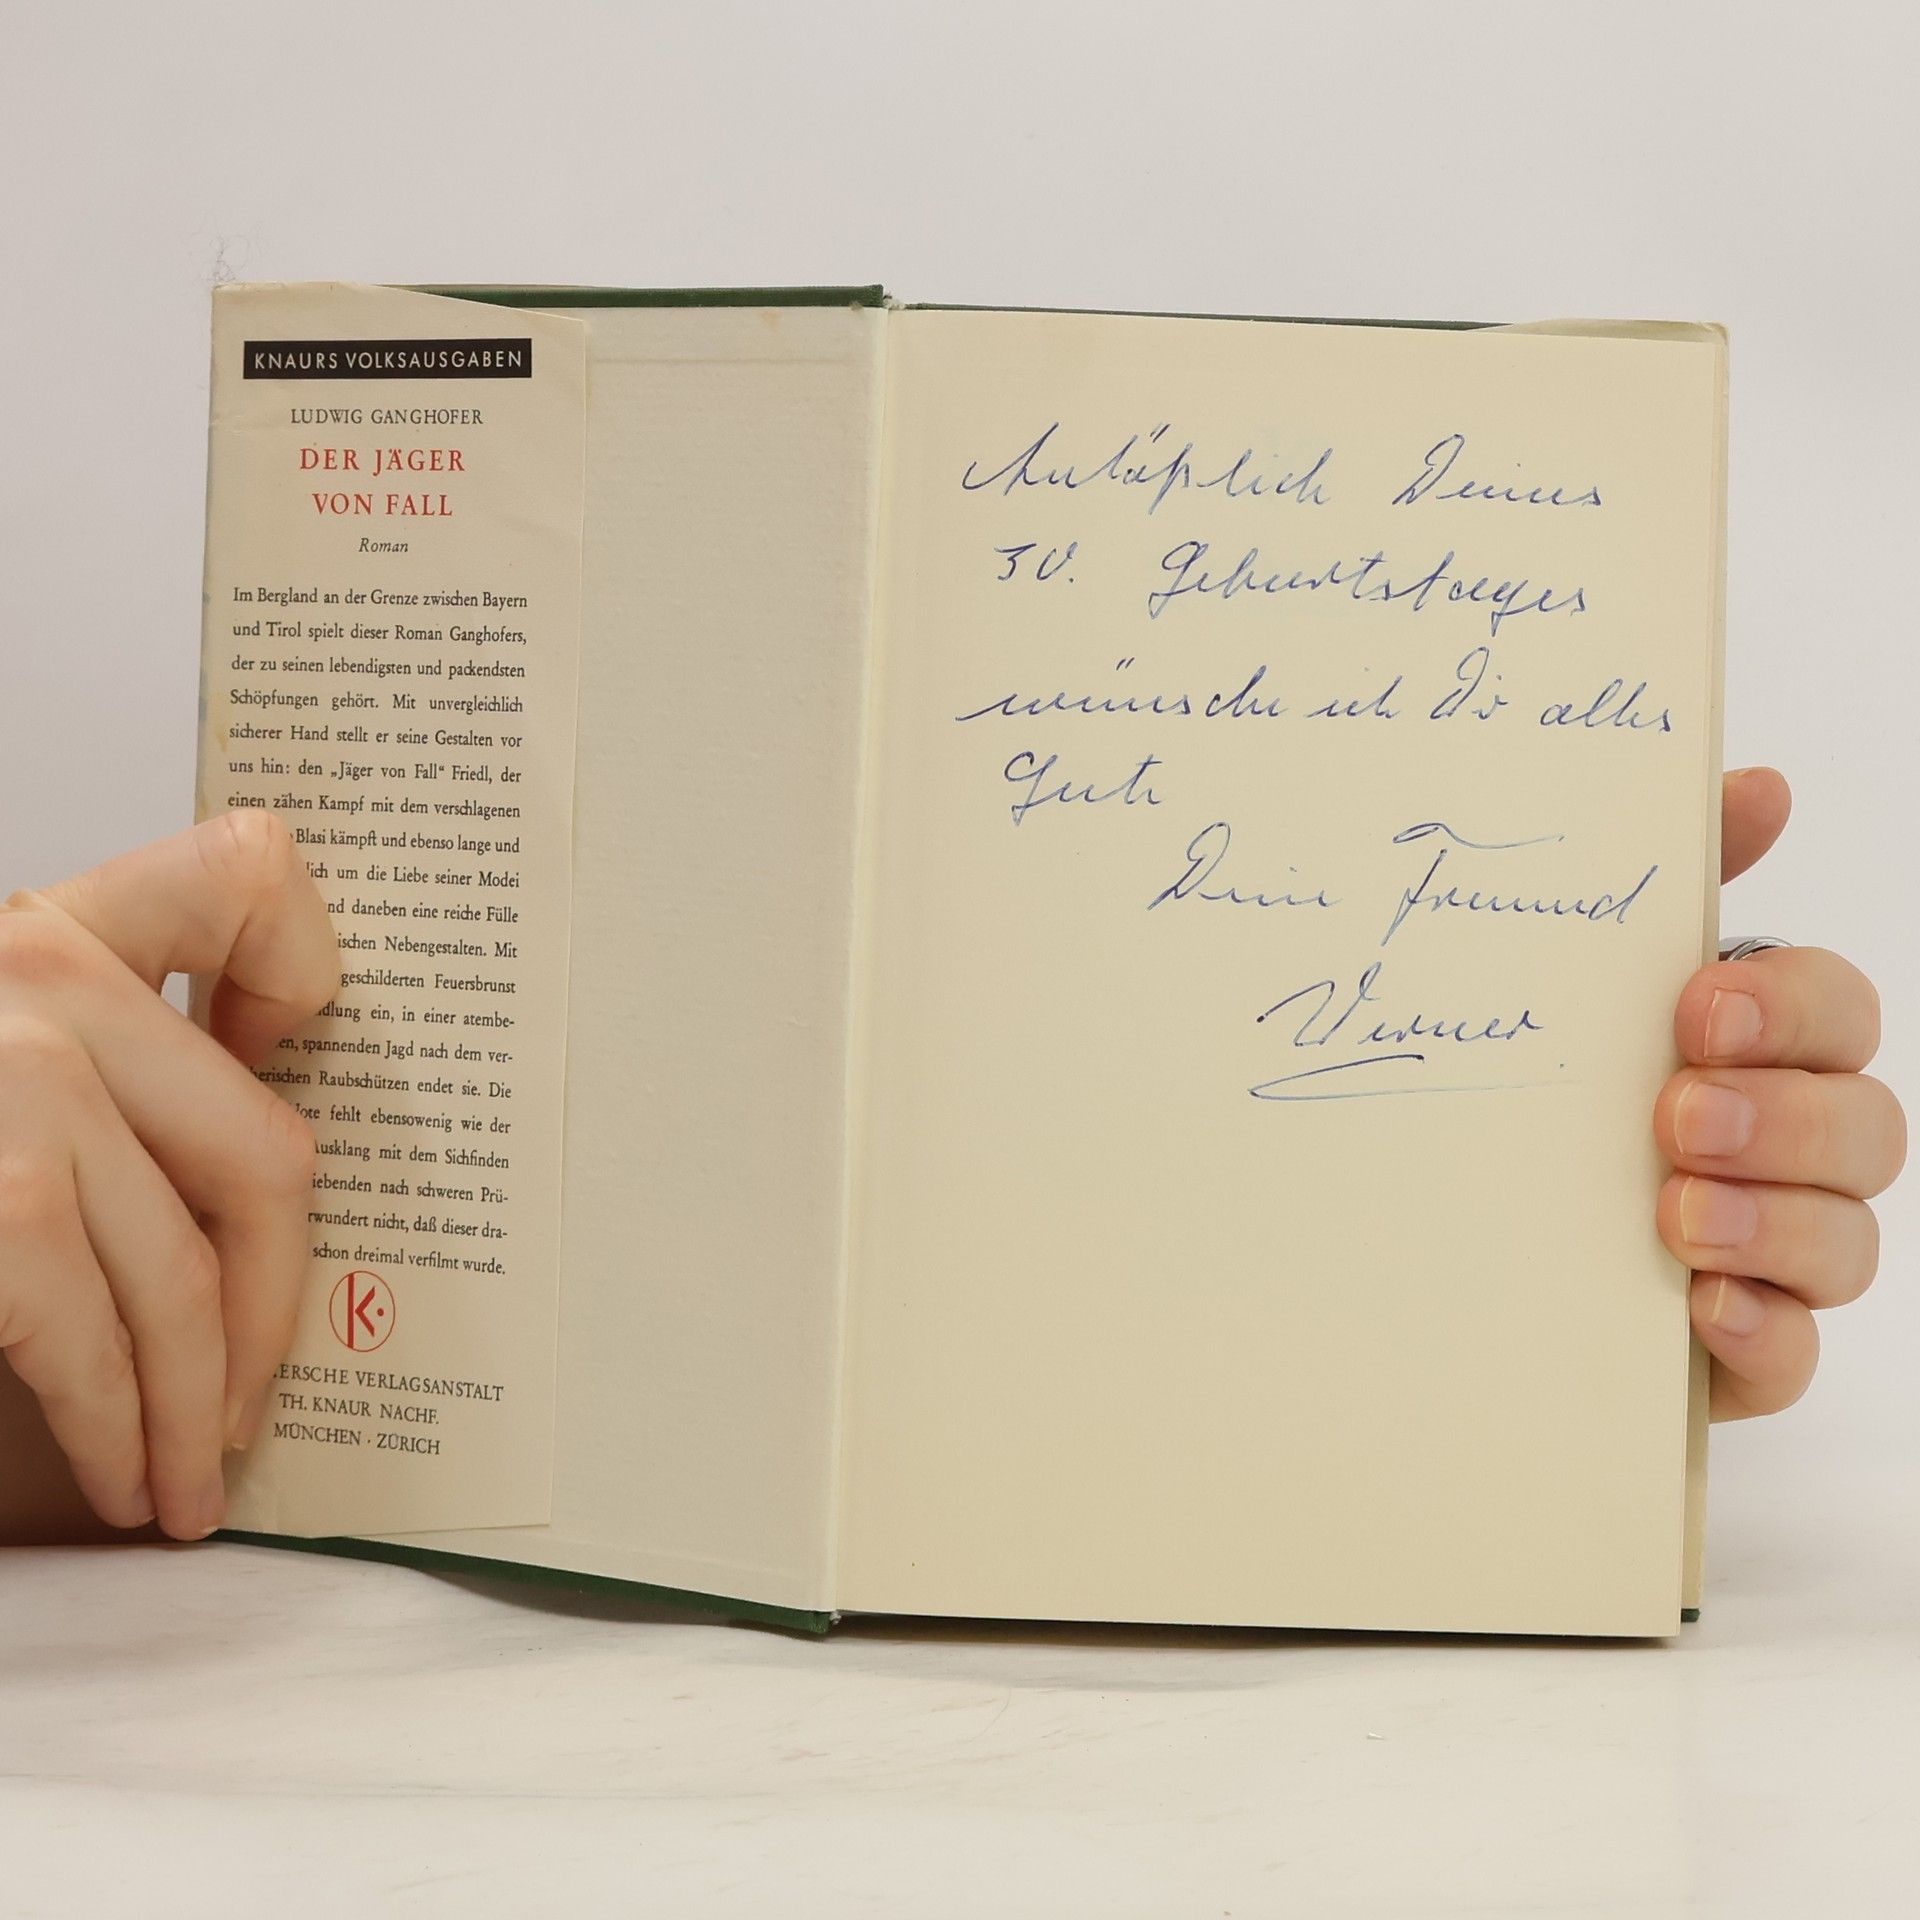 KNAURS VOLKSAUSGABEN
LUDWIG GANGHOFER
DER JÄGER
VON FALL
Roman
Im Bergland an der Grenze zwischen Bayern
und Tirol spielt dieser Roman Ganghofers,
der zu seinen lebendigsten und packendsten
Schöpfungen gehört. Mit unvergleichlich
sicherer Hand stellt er seine Gestalten vor
uns hin: den „Jäger von Fall“ Friedl, der
einen zähen Kampf mit dem verschlagenen
Blasi kämpft und ebenso lange und
lich um die Liebe seiner Modei
nd daneben eine reiche Fülle
ischen Nebengestalten. Mit
geschilderten Feuersbrunst
dlung ein, in einer atembe-
en, spannenden Jagd nach dem ver-
herischen Raubschützen endet sie. Die
Note fehlt ebensowenig wie der
Ausklang mit dem Sichfinden
iebenden nach schweren Prü-
rwundert nicht, daß dieser dra-
schon dreimal verfilmt wurde.
K
ERSCHE VERLAGSANSTALT
TH. KNAUR NACHF.
MÜNCHEN · ZÜRICH
Anläßlich Deines
30. Geburtstages
wünsche ich Dir alles
Gute
Dein Freund
Werner